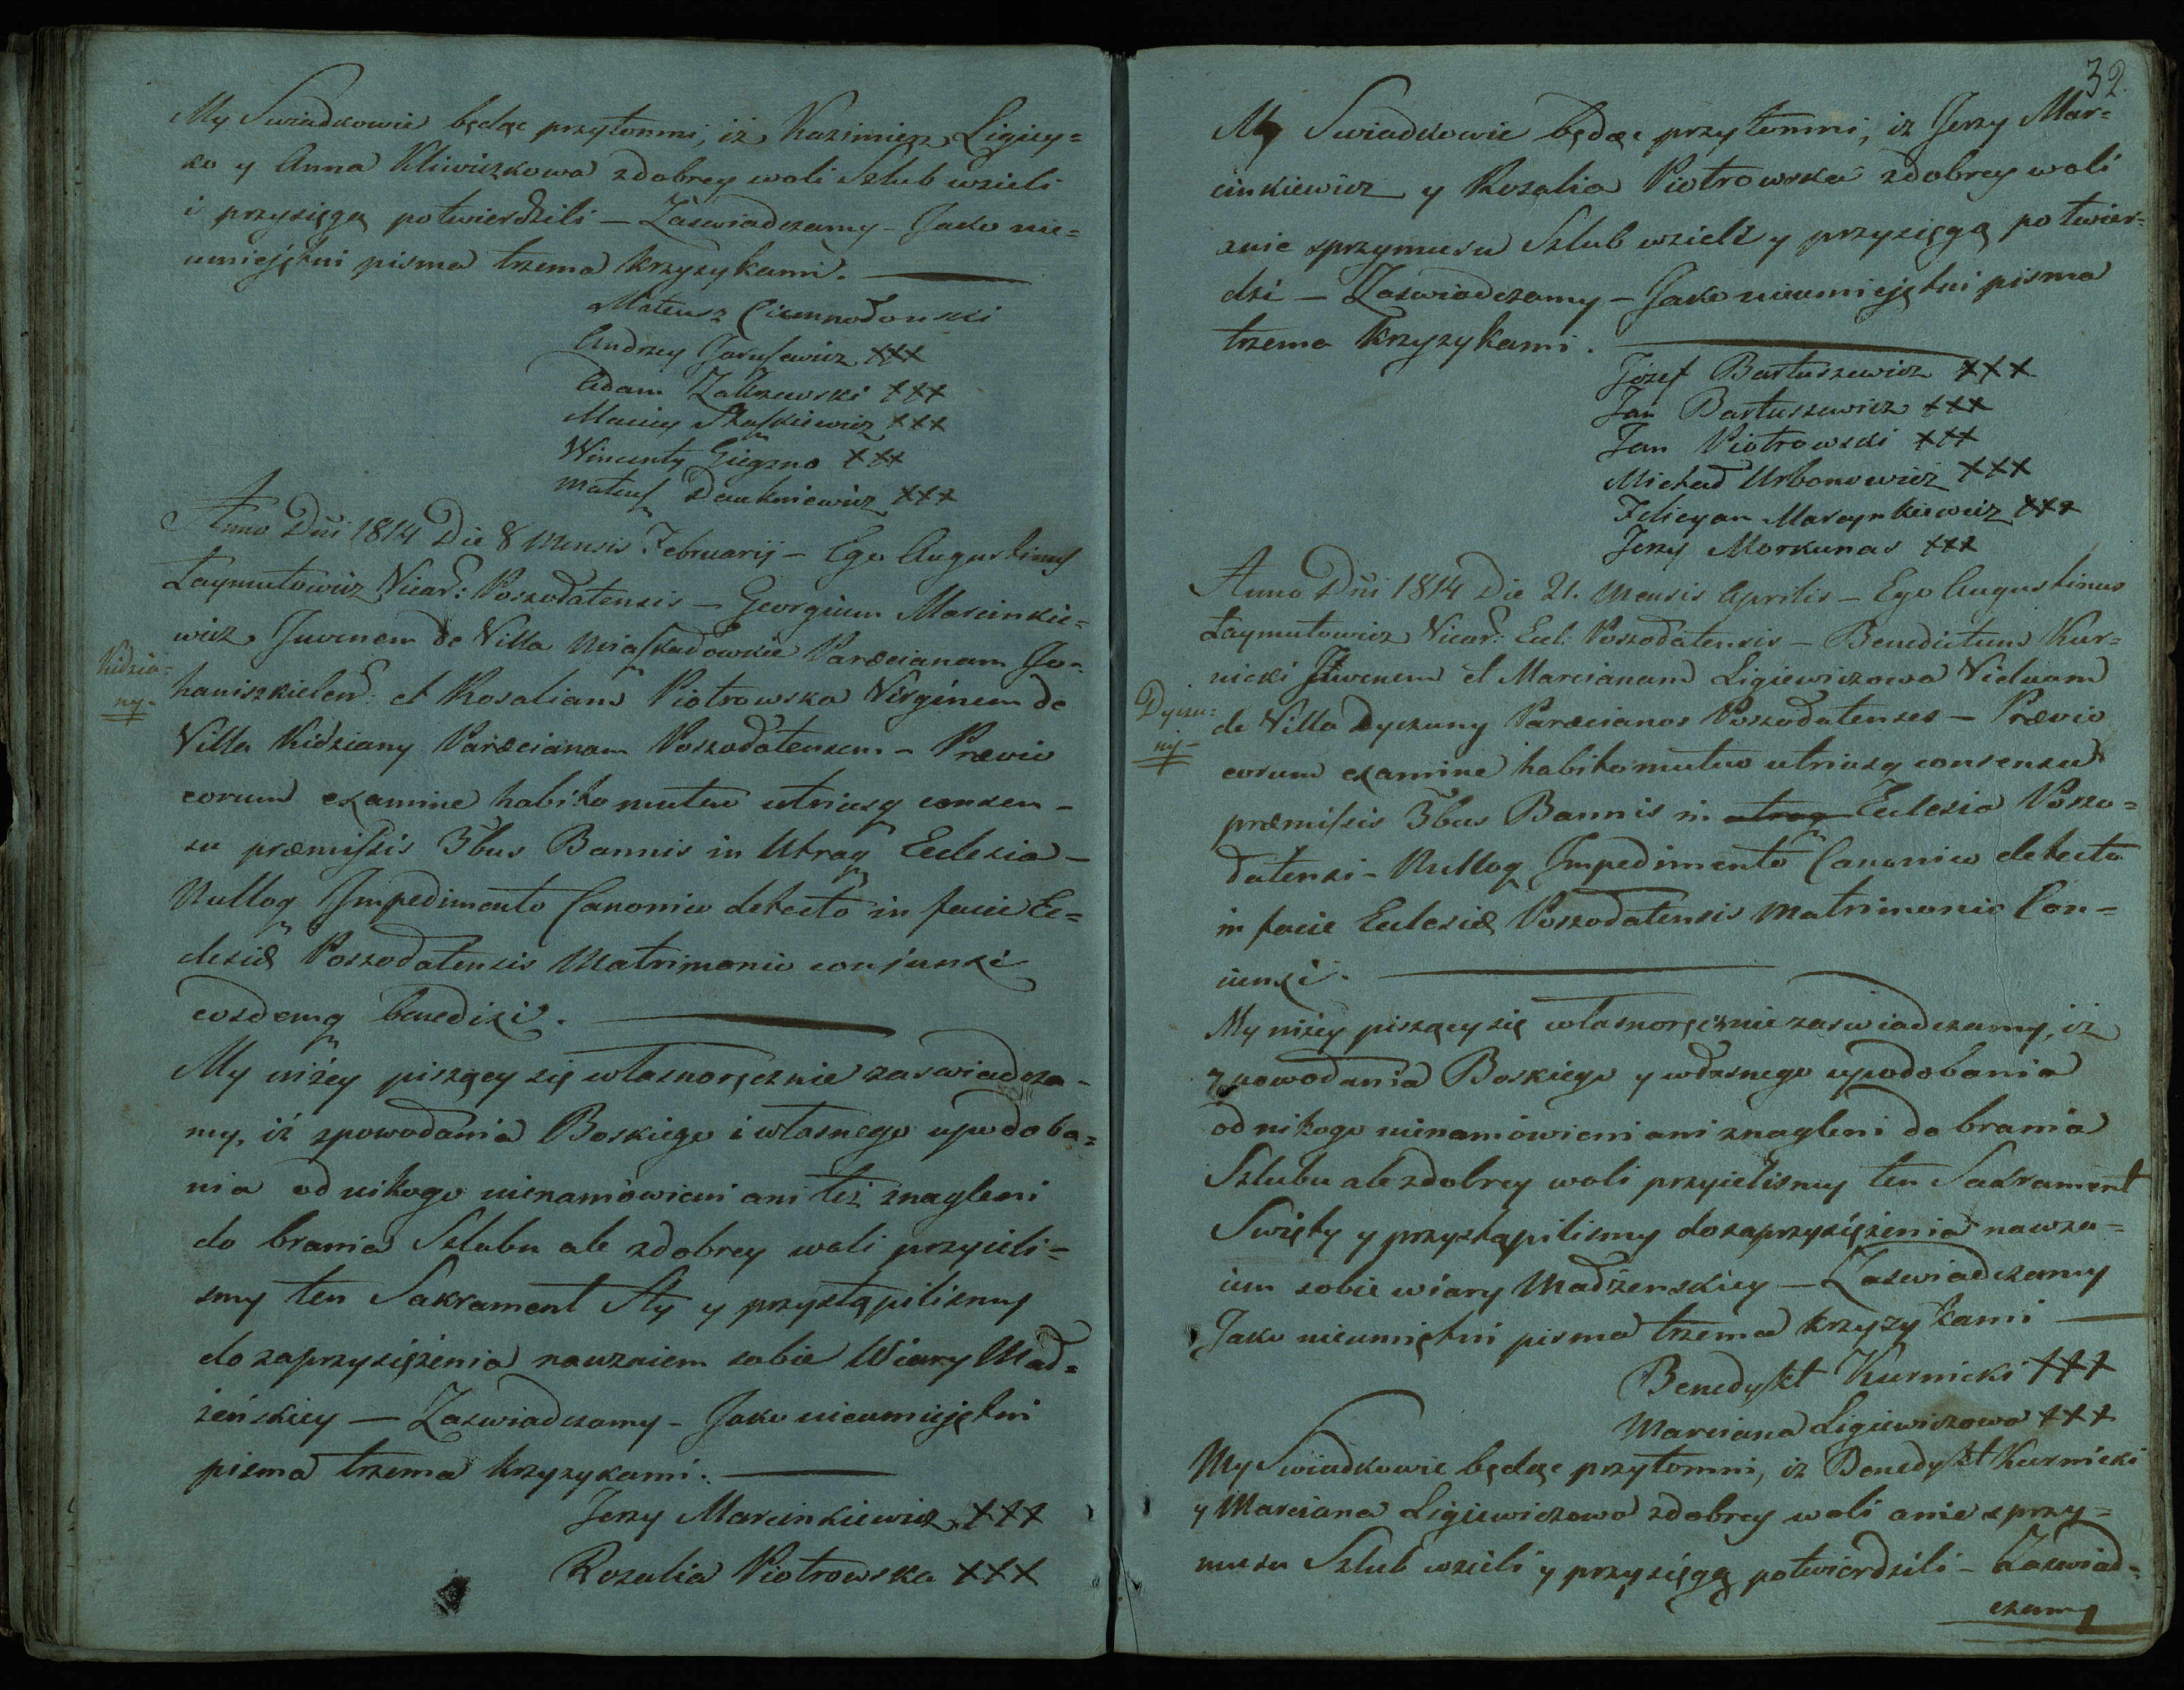 My Swiadkowie będąc przytomni, iż Kazimierz Ligiey=
ko y Anna Kliwiczkowa zdobrey woli Szlub wzieli
i przysięgą potwierdzili — Zaswiadczamy – Jako nie=
umiejętni pisma trzema krzyżykami. —
Mateusz Ciemnodonski
Andrzey Jarusewicz +++
Adam Zalizewski +++
Maciey +++
Wincenty Giegzno +++
Mateusz Daukniewicz +++
Anno Dni 1814 Die 8 Mensis Februarij – Ego Augustinus
Łaymutowicz Vicar: Poszodatensis – Georgium Marcinkie=
wicz Juvenem de Villa Paræcianam Jo=
Kidzia=
ny-
haniszkielen: et Rosaliam Piotrowska Virginem de
Villa Kidziany Paræcianam Poszodatensem – Prævio
eorum examine habito mutuo utriusq consen–
su præmissis 3bus Bannis in Utraq Ecclesia –
Nulloq Impedimento Canonico detecto in facie Ec=
clesiæ Poszodatensis Matrimonio conjunxi
eosdemq benedixi. —
My niżey piszącysię własnoręcznie zaswiadcza–
my, iż zpowodania Boskiego i własnego upodoba=
nia od nikogo nienamówieni ani też znagleni
do brania Szlubu ale zdobrey woli przyieli=
smy ten Sakrament Sty y przystąpilismy
do zaprzysiężenia nawzaiem sobie Wiary Mał=
żeńskiey — Zaswiadczamy – Jako nieumiejętni
pisma trzema krzyżykami: —
Jerzy Marcinkiewicz +++
Rozalia Piotrowska +++
32.
My Swiadkowie będąc przytomni, iż Jerzy Mar=
cinkiewicz y Rozalia Piotrowska zdobrey woli
anie zprzymusu Szlub wzieli y przysięgą potwier=
dzi — Zaswiadczamy – Jako nieumiejętni pisma
trzema krzyżykami. —
Józef Bartuszewicz +++
Jan Bartuszewicz +++
Jan Piotrowski +++
Michał Urbonowicz +++
Felicyan Marcynkiewicz +++
Jerzy Morkunas +++
Anno Dni 1814 Die 21. Mensis Aprilis – Ego Augustinus
Łaymutowicz Vicar: Eccl: Poszodatensis – Benedictum Kur=
nicki Juvenem et Marcianam Ligiewiczowa Viduam
Dyczu=
ny-
de Villa Dyczuny Paræcianos Poszodatenses – Prævio
eorum examine habito mutuo utriusq consensu
præmissis 3bus Bannis in utraq Ecclesia Poszo=
datensi – Nulloq Impedimento Canonico detecto
in facie Ecclesiæ Poszodatensis Matrimonio Con=
iunxi. —
My niżey piszącysię własnoręcznie zaswiadczamy, iż
zpowodania Boskiego y własnego upodobania
od nikogo nienamówieni ani znagleni do brania
Szlubu ale zdobrey woli przyielismy ten Sakrament
Swięty y przystąpilismy dozaprzysiężenia nawza=
iem sobie wiary Małżenskiey — Zaswiadczamy
Jako nieumiętni pisma trzema krzyżykami —
Benedykt Kurnicki +++
Marciana Ligiewiczowa +++
My Swiadkowie będąc przytomni, iż Benedykt Kurnicki
y Marciana Ligiewiczowa zdobrey woli anie zprzy=
musu Szlub wzieli y przysięgą potwierdzili – Zaswiad=
czamy